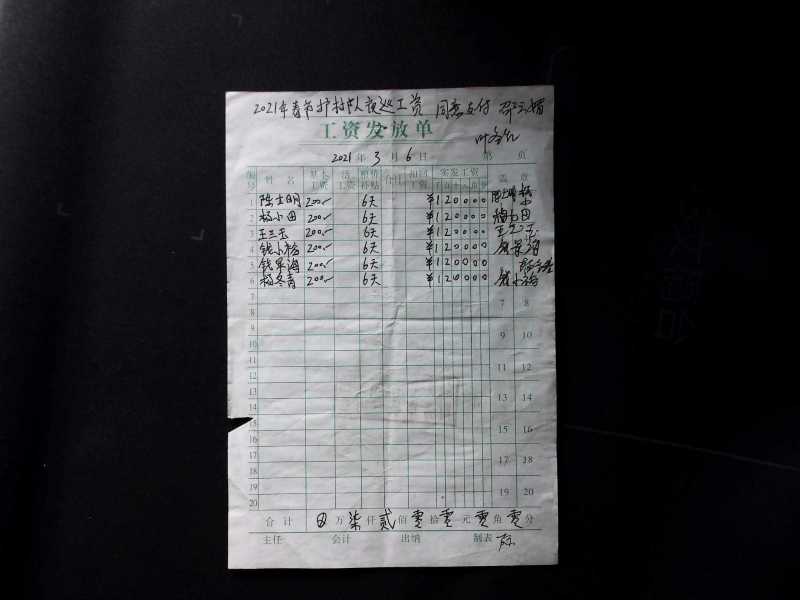 2021年春节护村队夜巡工资 同意支付
工资发放单
2021年3月6日 第 页
编号 姓名 基本工资 活工资 物价补贴 合计 扣回工资 实发工资 盖章
1 陈士明 200.- 6天 ¥120000
2 杨小田 200.- 6天 ¥120000 杨小田
3 王三玉 200.- 6天 ¥120000 王三玉
4 钱小杨 200.- 6天 ¥120000
5 钱军海 200.- 6天 ¥120000
6 杨冬青 200.- 6天 ¥120000
7 7 8
8
9 9 10
10
11 11 12
12
13 13 14
14
15 15 16
16
17 17 18
18
19 19 20
20
合计 万柒仟贰佰零拾零元零角零分
主任 会计 出纳 制表